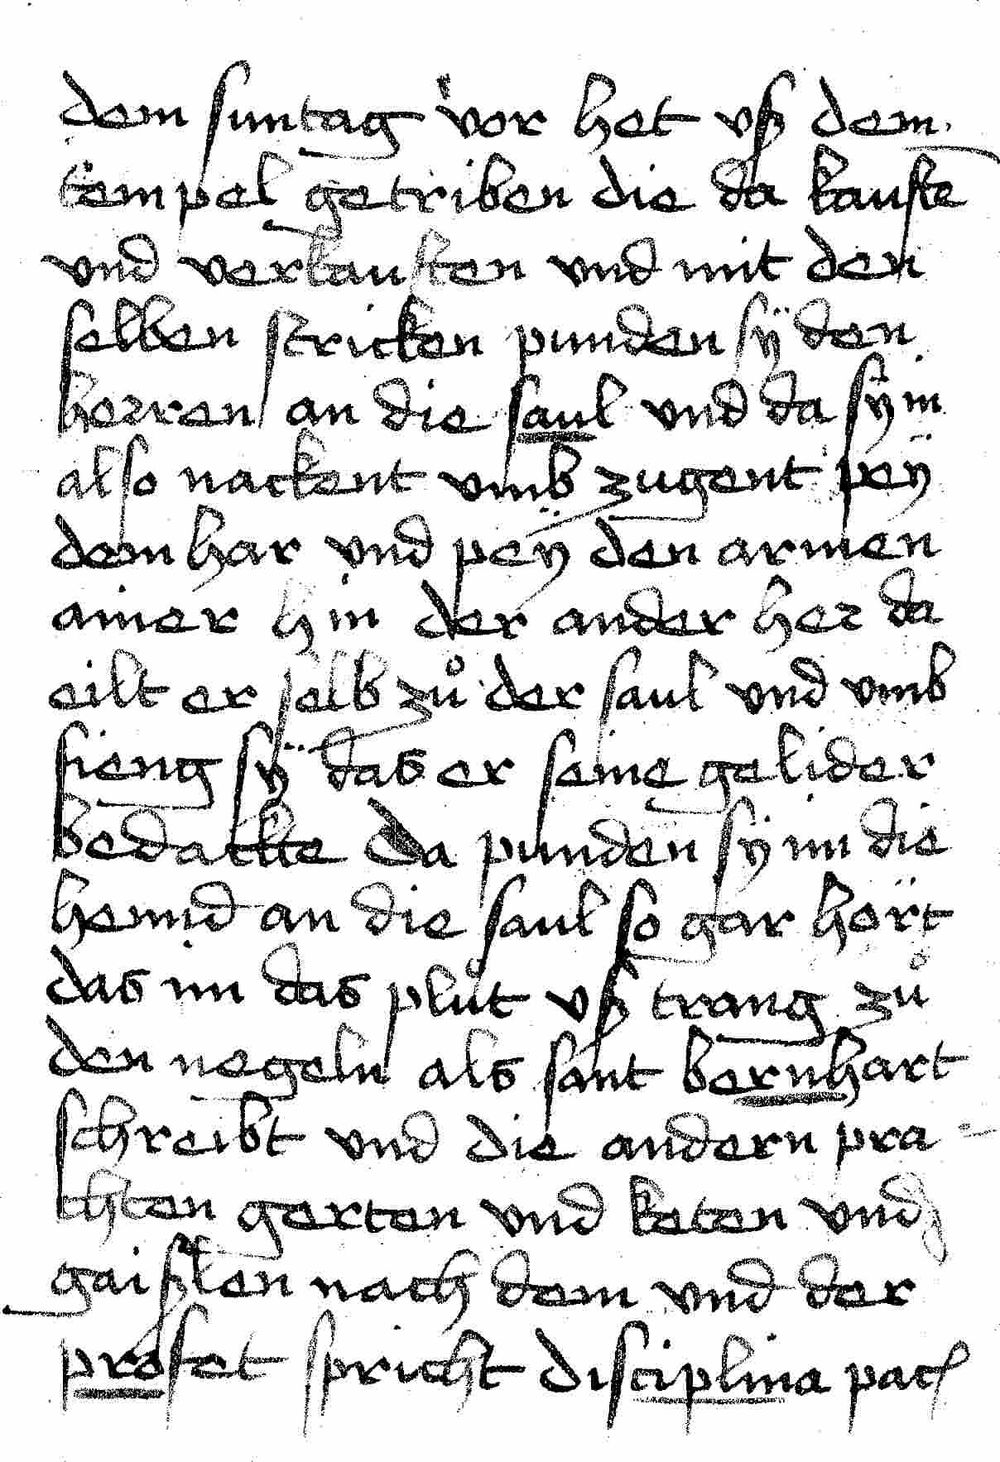 dem suntag vor het vß dem
tempel getriben die da kaufte
vnd verkauften vnd mit den
selben stricken punden sÿ den
herren an die saul vnd da sÿ in
also nackent vmb zugent peÿ
dem har vnd peÿ den armen
ainer hin der ander her da
eilt er selb zů der saul vnd vmb
fieng sÿ das er seine gelider
bedackte da punden sÿ im die
hennd an die saul so gar hört
das im das plůt vß trang zů
den negeln als sant bernhart
schreibt vnd die andern pra-
chten gerten vnd keten vnd
gaißlen nach dem vnd der
profet spricht disciplina pac